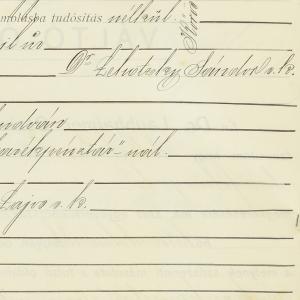 molásba tudósítás nélkül
il úr
Dr Lehotzky Sándor s. k.
ndván
arékpénztár" nál.
Lajos s. k.